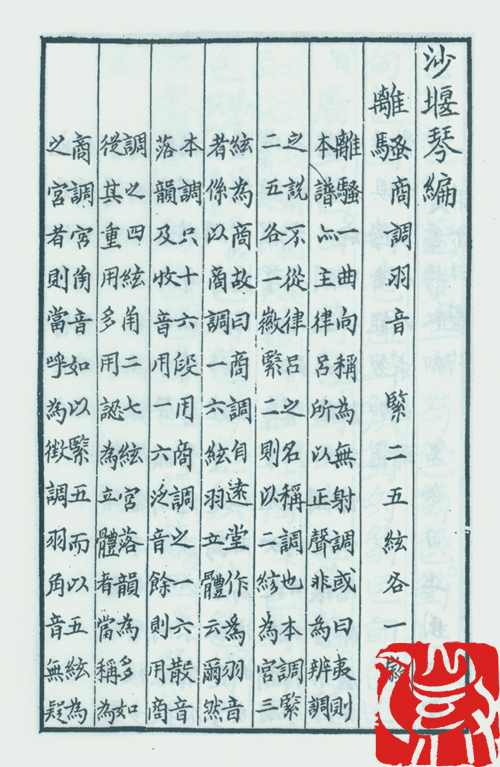 沙堰琴編
離騷商調羽音 緊二五絃各一徽
離騷一曲向稱為無射調或曰夷則
本譜亦主律呂所以正聲非為辨調
之說不從律呂之名稱調也本調緊
二五各一徽緊二則以二絃為宮三
絃為商故曰商調自遠堂作為羽音
者係以商調一六絃羽立體云爾然
本調只十六段用商調之一六散音
落韻及收音用一六泛音餘則用商
調之四絃角二七絃宮落韻為多如
從其重用多用認為立體者當稱為
商調宮角音如以緊五而以五絃為
之宮者則當呼為徵調羽角音無疑